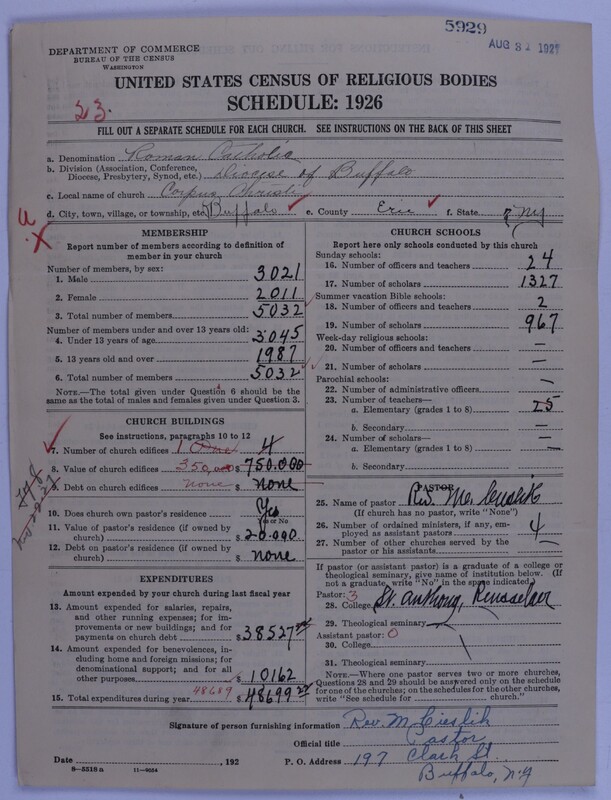 5929
AUG 31 1927
DEPARTMENT OF COMMERCE
BUREAU OF THE CENSUS
WASHINGTON
UNITED STATES CENSUS OF RELIGIOUS BODIES
SCHEDULE: 1926
23.
FILL OUT A SEPARATE SCHEDULE FOR EACH CHURCH. SEE INSTRUCTIONS ON THE BACK OF THIS SHEET
a. Denomination Roman Catholic
b. Division (Association, Conference, Diocese, Presbytery, Synod, etc.) Diocese of Buffalo
c. Local name of church Corpus Christi
d. City, town, village, or township, etc. Buffalo e. County Erie f. State NY
MEMBERSHIP
Report number of members according to definition of member in your church
Number of members, by sex:
1. Male 3021
2. Female 2011
3. Total number of members 5032
Number of members under and over 13 years old:
4. Under 13 years of age 3045
5. 13 years old and over 1987
6. Total number of members 5032
NOTE.—The total given under Question 6 should be the same as the total of males and females given under Question 3.
CHURCH BUILDINGS
See instructions, paragraphs 10 to 12
7. Number of church edifices 1 One 4
8. Value of church edifices 350,000 $ 750.000
9. Debt on church edifices none $ none
10. Does church own pastor's residence? Yes
Yes or No
11. Value of pastor's residence (if owned by church) $ 20.000
12. Debt on pastor's residence (if owned by church) $ none
EXPENDITURES
Amount expended by your church during last fiscal year
13. Amount expended for salaries, repairs, and other running expenses; for improvements or new buildings; and for payments on church debt $ 38527
14. Amount expended for benevolences, including home and foreign missions; for denominational support; and for all other purposes $ 10162
15. Total expenditures during year 48689 $ 48699
CHURCH SCHOOLS
Report here only schools conducted by this church
Sunday schools:
16. Number of officers and teachers 24
17. Number of scholars 1327
Summer vacation Bible schools:
18. Number of officers and teachers 2
19. Number of scholars 967
Week-day religious schools:
20. Number of officers and teachers —
21. Number of scholars —
Parochial schools:
22. Number of administrative officers —
23. Number of teachers—
a. Elementary (grades 1 to 8) 25
b. Secondary —
24. Number of scholars—
a. Elementary (grades 1 to 8) —
b. Secondary
PASTOR
25. Name of pastor Rev. M. Cieslik
(If church has no pastor, write "None")
26. Number of ordained ministers, if any, employed as assistant pastors 4
27. Number of other churches served by the pastor or his assistants —
If pastor (or assistant pastor) is a graduate of a college or theological seminary, give name of institution below. (If not a graduate, write "No" in the space indicated)
Pastor: 3
28. College St. Anthony, Rensselaer
29. Theological seminary
Assistant pastor: 0
30. College
31. Theological seminary
NOTE.—Where one pastor serves two or more churches, Questions 28 and 29 should be answered only on the schedule for one of the churches; on the schedules for the other churches, write "See schedule for church."
Signature of person furnishing information Rev. M Cieslik
Official title Pastor
Date , 192 P. O. Address 197 Clark St.
Buffalo, N.Y
8—5518 a 11—9054